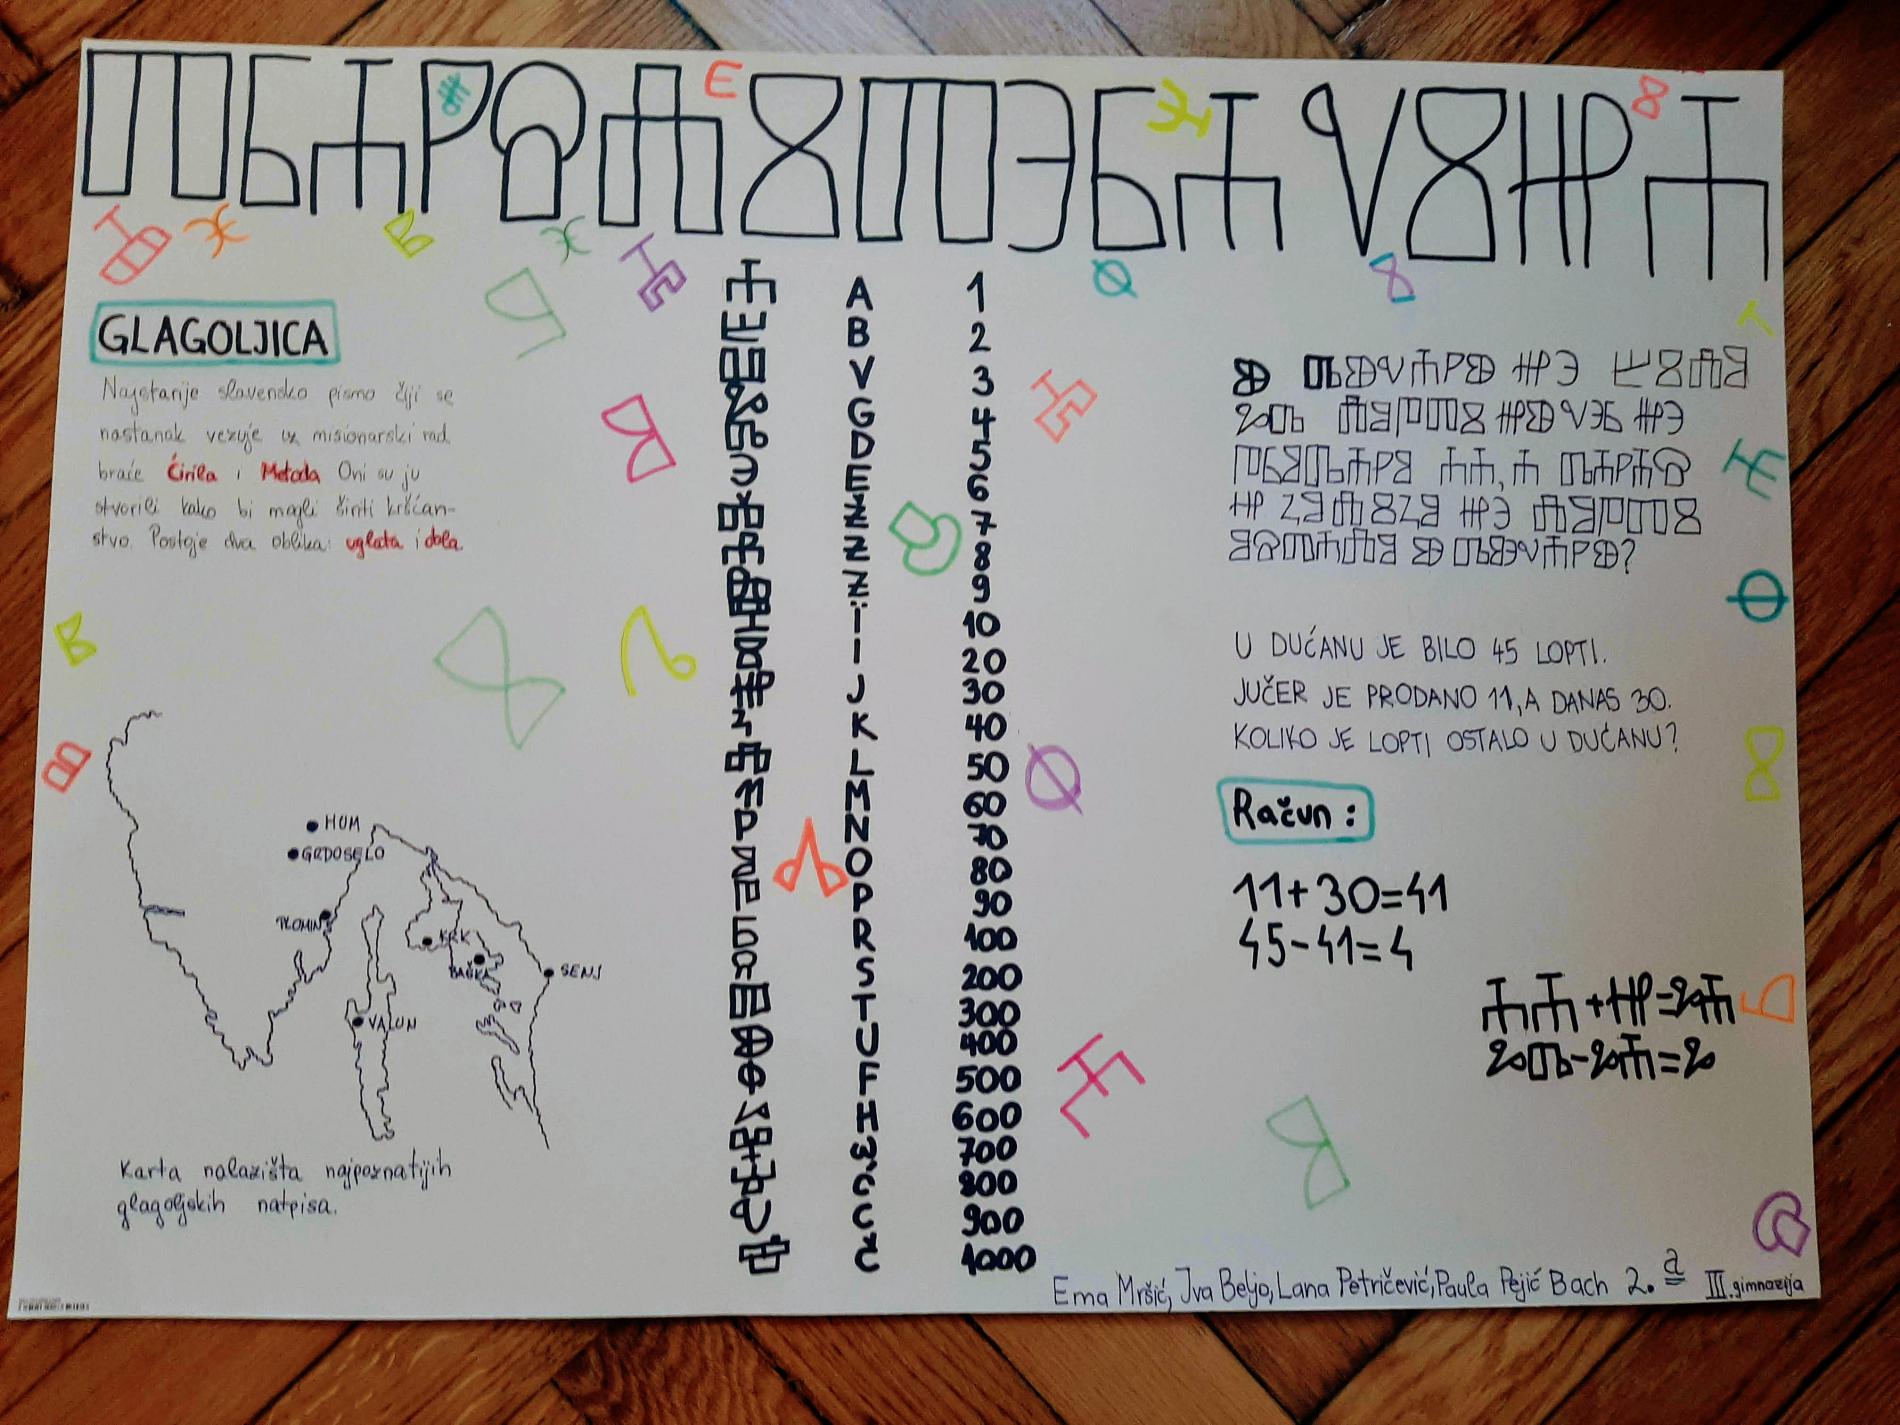 ⰕⰓⰀⰐⰔⰎⰋⰕⰅⰓⰀ ⰜⰋⰌⰀ
GLAGOLJICA
Najstarije slavensko pismo čiji se
nastanak vezuje uz misionarski rad
braće Ćirila i Metoda Oni su ju
stvorili kako bi mogli širiti kršćan-
stvo. Postoje dva oblika: uglata i obla.
HUM
GRDOSELO
PLOMIN
KRK
BAŠKA
SENJ
VALUN
Karta nalazišta najpoznatijih
glagoljskih natpisa.
Ⰰ A 1
Ⰱ B 2
Ⰲ V 3
Ⰳ G 4
Ⰴ D 5
Ⰵ E 6
Ⰶ Ž 7
Ⰷ Z 8
Ⰸ Z 9
Ⰹ Ï 10
Ⰻ I 20
Ⰼ J 30
Ⰽ K 40
Ⰾ L 50
Ⰿ M 60
Ⱀ N 70
Ⱁ O 80
Ⱂ P 90
Ⱃ R 100
Ⱄ S 200
Ⱅ T 300
Ⱆ U 400
Ⱇ F 500
Ⱈ H 600
Ⱉ ω 700
Ⱋ Ć 800
Ⱌ C 900
Ⱍ Č 1000
Ⱆ ⰄⰖⰜⰀⰐⰖ ⰌⰅ ⰁⰋⰎⰑ
ⰃⰄ ⰎⰑⰒⰕⰋ ⰌⰖⰜⰅⰓ ⰌⰅ
ⰒⰓⰑⰄⰀⰐⰑ ⰀⰀ, Ⰰ ⰄⰀⰐⰀⰔ
Ⰼ ⰍⰑⰎⰋⰍⰑ ⰌⰅ ⰎⰑⰒⰕⰋ
ⰑⰔⰕⰀⰎⰑ Ⱆ ⰄⰖⰜⰀⰐⰖ?
U DUĆANU JE BILO 45 LOPTI.
JUČER JE PRODANO 11, A DANAS 30.
KOLIKO JE LOPTI OSTALO U DUĆANU?
Račun:
11+30=41
45-41=4
ⰀⰀ+Ⰼ=ⰃⰀ
ⰃⰄ-ⰃⰀ=Ⰳ
Ema Mršić, Iva Beljo, Lana Petričević, Paula Pejić Bach 2.a III. gimnazija